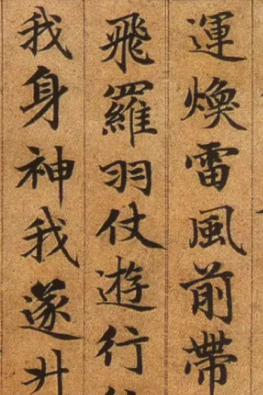 運煥雷風前帶
飛羅羽仗遊行
我身神我遂升